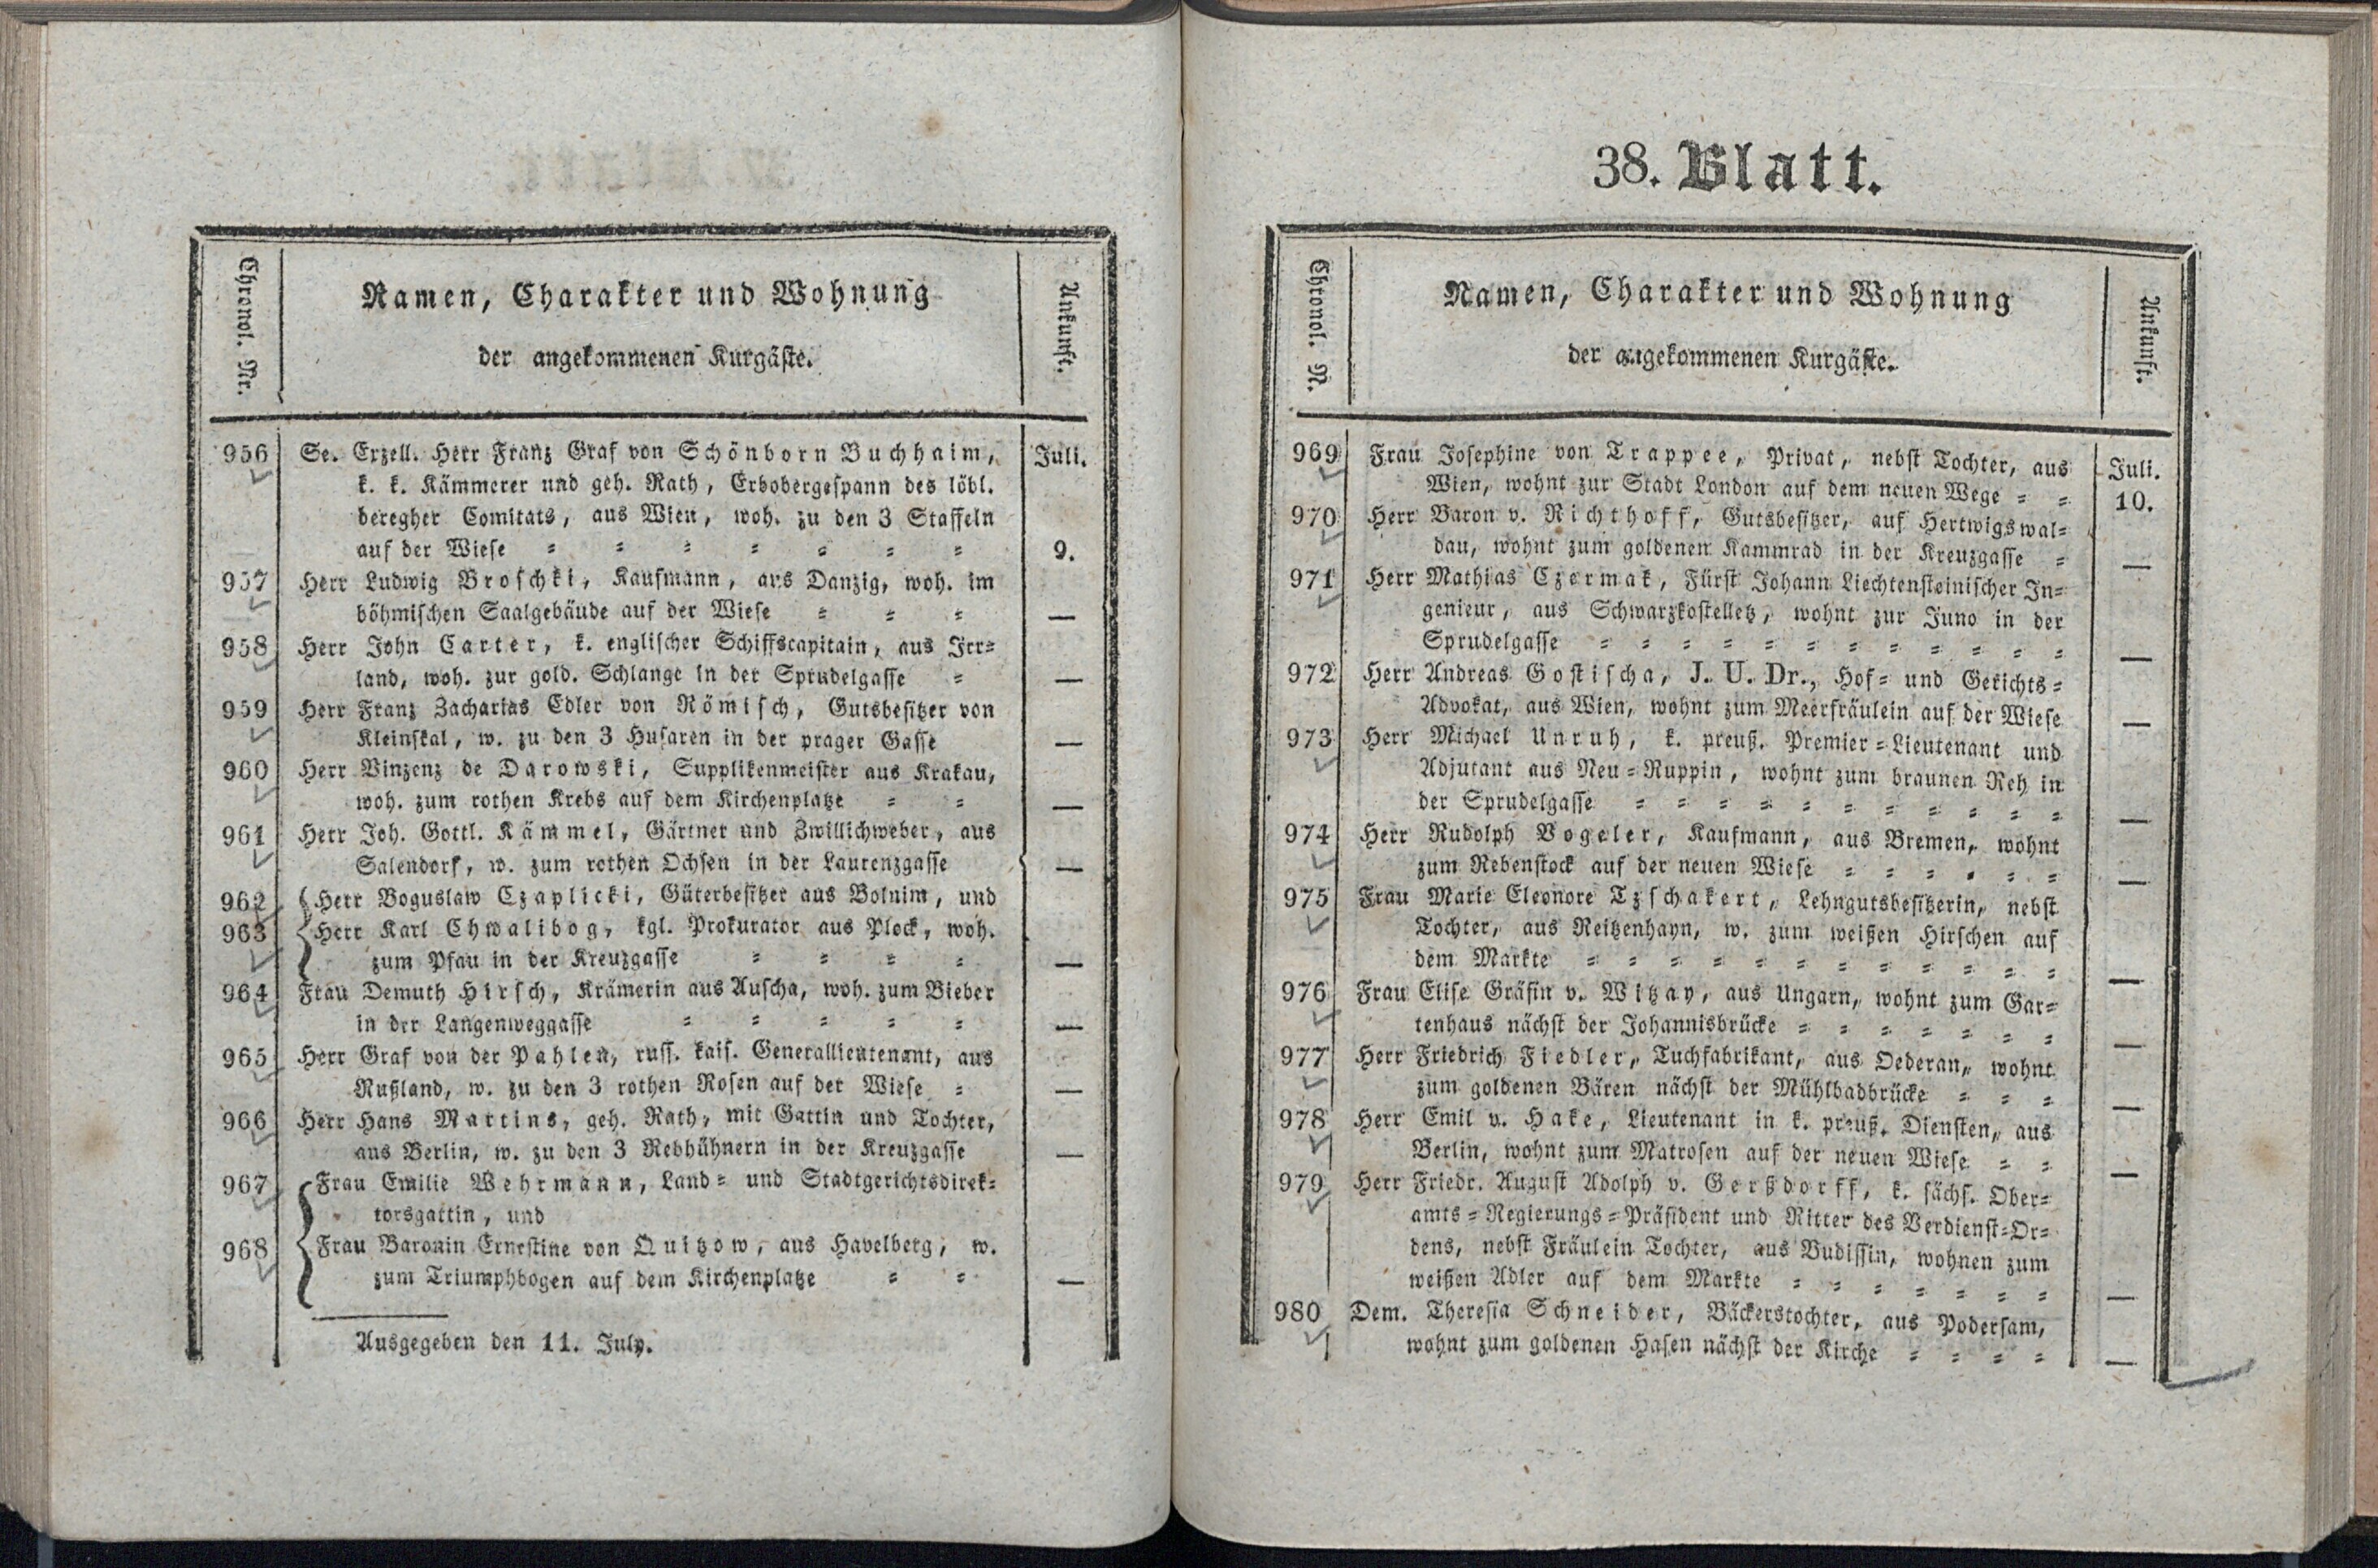 Chronol. Nr.
Namen, Charakter und Wohnung
der angekommenen Kurgäste.
Ankunft.
956 Se. Exzell. Herr Franz Graf von Schönborn Buchhaim, Juli.
k. k. Kämmerer und geh. Rath, Erbobergespann des löbl.
beregher Comitats, aus Wien, woh. zu den 3 Staffeln
auf der Wiese = = = = = = = 9.
957 Herr Ludwig Broschki, Kaufmann, aus Danzig, woh. im
böhmischen Saalgebäude auf der Wiese = = = —
958 Herr John Carter, k. englischer Schiffscapitain, aus Irr=
land, woh. zur gold. Schlange in der Sprudelgasse = —
959 Herr Franz Zacharias Edler von Römisch, Gutsbesitzer von
Kleinskal, w. zu den 3 Husaren in der prager Gasse —
960 Herr Vinzenz de Darowski, Supplikenmeister aus Krakau,
woh. zum rothen Krebs auf dem Kirchenplatze = = —
961 Herr Joh. Gottl. Kämmel, Gärtner und Zwillichweber, aus
Salendorf, w. zum rothen Ochsen in der Laurenzgasse —
962 Herr Boguslaw Czaplicki, Güterbesitzer aus Bolnim, und
963 Herr Karl Chwalibog, kgl. Prokurator aus Plock, woh.
zum Pfau in der Kreuzgasse = = = = —
964 Frau Demuth Hirsch, Krämerin aus Auscha, woh. zum Bieber
in der Langenweggasse = = = = = —
965 Herr Graf von der Pahlen, russ. kais. Generallieutenant, aus
Rußland, w. zu den 3 rothen Rosen auf der Wiese = —
966 Herr Hans Martins, geh. Rath, mit Gattin und Tochter,
aus Berlin, w. zu den 3 Rebhühnern in der Kreuzgasse —
967 Frau Emilie Wehrmann, Land= und Stadtgerichtsdirek=
torsgattin, und
968 Frau Baronin Ernestine von Quitzow, aus Havelberg, w.
zum Triumphbogen auf dem Kirchenplatze = = —
Ausgegeben den 11. July.
38. Blatt.
Chronol. N.
Namen, Charakter und Wohnung
der angekommenen Kurgäste.
Ankunft.
969 Frau Josephine von Trappee, Privat, nebst Tochter, aus Juli.
Wien, wohnt zur Stadt London auf dem neuen Wege = = 10.
970 Herr Baron v. Richthoff, Gutsbesitzer, auf Hertwigswal=
dau, wohnt zum goldenen Kammrad in der Kreuzgasse = —
971 Herr Mathias Czermak, Fürst Johann Liechtensteinischer In=
genieur, aus Schwarzkostelletz, wohnt zur Juno in der
Sprudelgasse = = = = = = = = = = = = —
972 Herr Andreas Gostischa, J. U. Dr., Hof= und Gerichts=
Advokat, aus Wien, wohnt zum Meerfräulein auf der Wiese —
973 Herr Michael Unruh, k. preuß. Premier=Lieutenant und
Adjutant aus Neu=Ruppin, wohnt zum braunen Reh in
der Sprudelgasse = = = = = = = = = = = —
974 Herr Rudolph Vogeler, Kaufmann, aus Bremen, wohnt
zum Rebenstock auf der neuen Wiese = = = = = = —
975 Frau Marie Eleonore Tzschakert, Lehngutsbesitzerin, nebst
Tochter, aus Reitzenhayn, w. zum weißen Hirschen auf
dem Markte = = = = = = = = = = = = —
976 Frau Elise Gräfin v. Witzay, aus Ungarn, wohnt zum Gar=
tenhaus nächst der Johannisbrücke = = = = = = = —
977 Herr Friedrich Fiedler, Tuchfabrikant, aus Oederan, wohnt
zum goldenen Bären nächst der Mühlbadbrücke = = = —
978 Herr Emil v. Hake, Lieutenant in k. preuß. Diensten, aus
Berlin, wohnt zum Matrosen auf der neuen Wiese = = —
979 Herr Friedr. August Adolph v. Gerßdorff, k. sächs. Ober=
amts=Regierungs=Präsident und Ritter des Verdienst=Or=
dens, nebst Fräulein Tochter, aus Budissin, wohnen zum
weißen Adler auf dem Markte = = = = = = = —
980 Dem. Theresia Schneider, Bäckerstochter, aus Podersam,
wohnt zum goldenen Hasen nächst der Kirche = = = = —